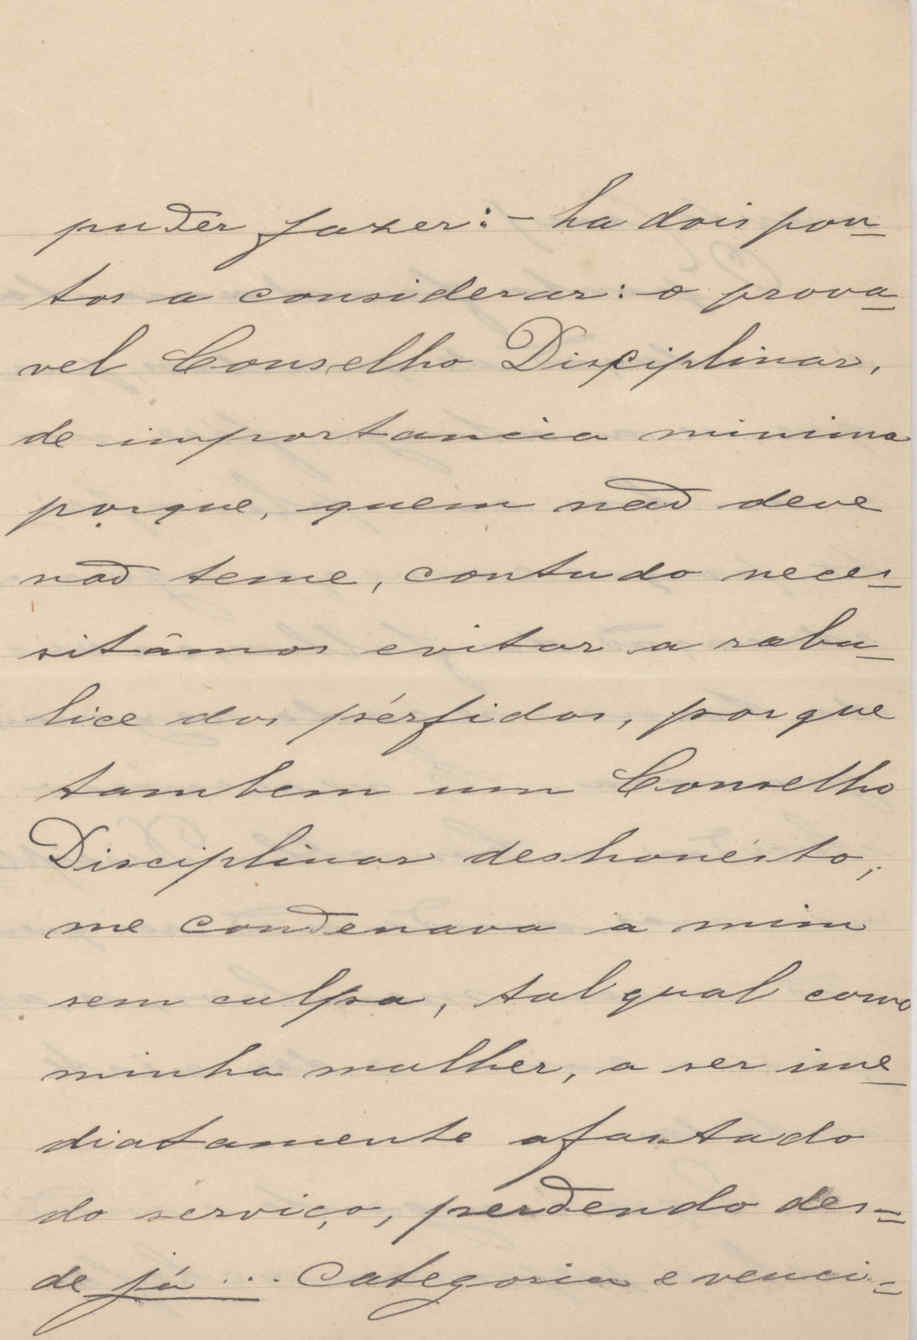 puder fazer: - ha dois pon-
tos a considerar: o prova-
vel Conselho Disciplinar,
de importancia minima
porque, quem não deve
não teme, contudo neces-
sitâmos evitar a rabu-
lice dos pérfidos, porque
tambem um Conselho
Disciplinar deshonésto,
me condenava a mim
sem culpa, tal qual como
minha mulher, a ser ime-
diatamente afastado
do serviço, perdendo des-
de já ... Categoria e venci-